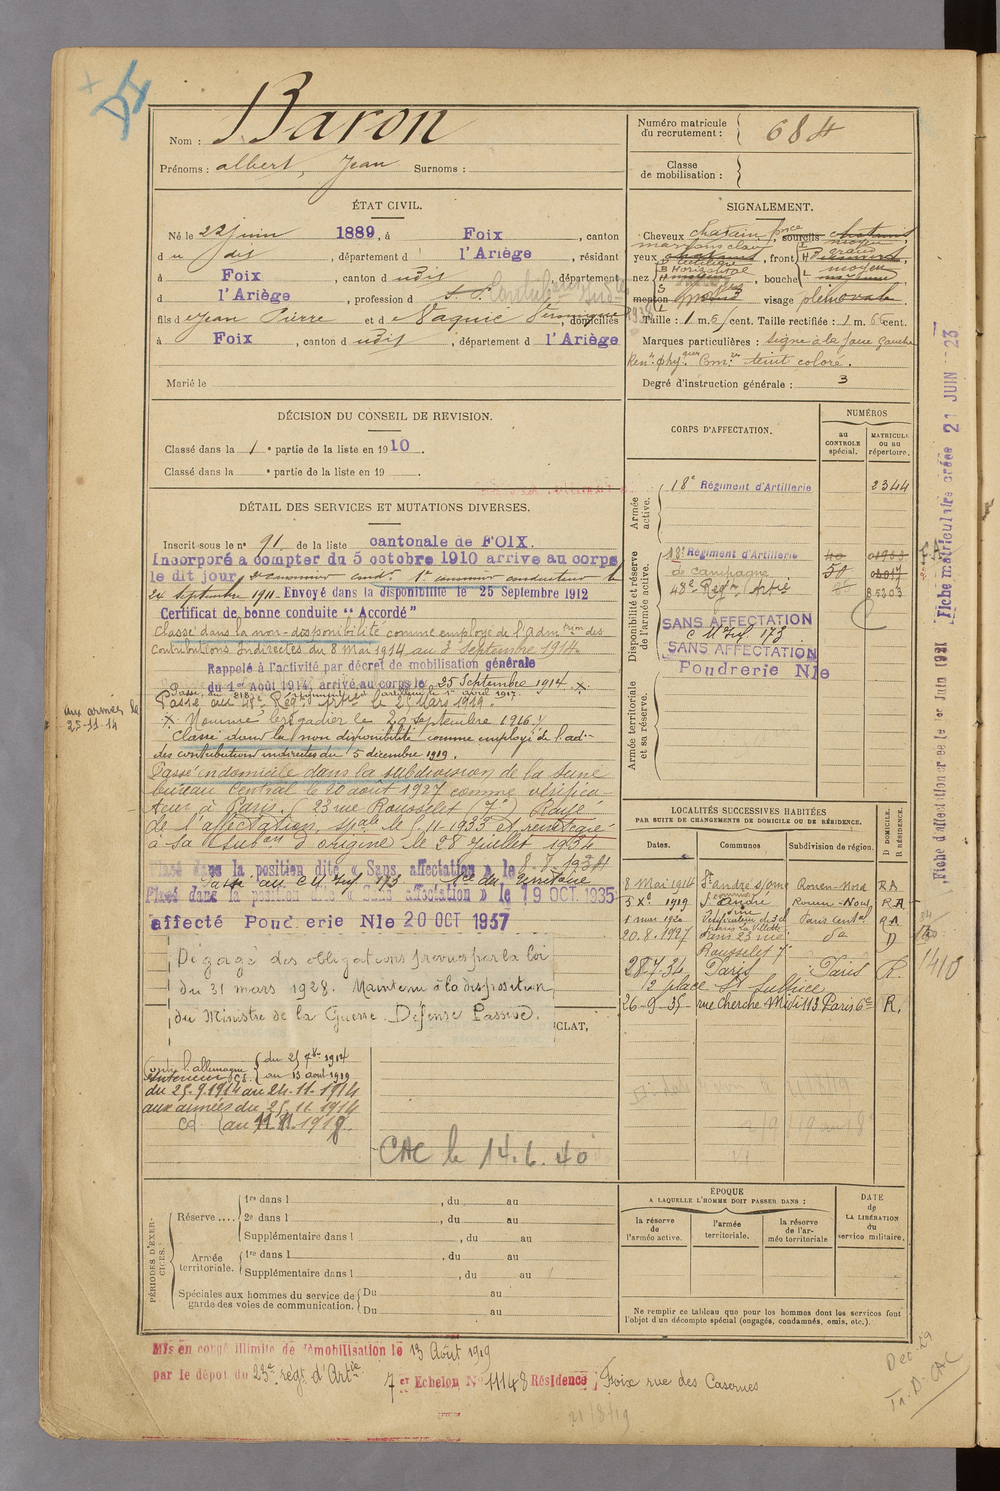 Nom : Baron
Prénoms : albert, Jean Surnoms :
Numéro matricule du recrutement : 684
Classe de mobilisation :
ÉTAT CIVIL.
Né le 22 juin 1889, à Foix, canton
d u dit, département d l'Ariège, résidant
à Foix, canton d udit, département
d l'Ariège, profession d
fils d Jean Pierre et d , domiciliés
à Foix, canton d udit, département d l'Ariège
Marié le
SIGNALEMENT.
Cheveux chatain foncé sourcils chatains
yeux marrons clair, front
nez Horizontal, bouche moyen
menton visage plein ovale.
Taille : 1 m. 6 cent. Taille rectifiée : 1 m. 66 cent.
Marques particulières : signe à la joue gauche
teint coloré.
Degré d'instruction générale : 3
DÉCISION DU CONSEIL DE REVISION.
Classé dans la 1 e partie de la liste en 1910.
Classé dans la e partie de la liste en 19
DÉTAIL DES SERVICES ET MUTATIONS DIVERSES.
Inscrit sous le n° 91 de la liste cantonale de FOIX.
Incorporé à compter du 5 octobre 1910 arrive au corps
le dit jour 1er conducteur le
24 Septembre 1911. Envoyé dans la disponibilité le 25 Septembre 1912
Certificat de bonne conduite "Accordé"
Classé dans la non-disponibilité comme employé de l'admtion des
Contributions Indirectes du 8 Mai 1914 au 3 Septembre 1914.
Rappelé à l'activité par décret de mobilisation générale
du 1er Août 1914, arrivé au corps le 25 Septembre 1914. X.
Passé au 48e Régt Artie le 25 Mars 1919.
X. Nommé brigadier le 20 Septembre 1916.
Classé dans la non disponibilité comme employé de l'ad-
des contributions indirectes du 5 décembre 1919.
Passé in domicile dans la subdivision de la Seine
bureau Central le 20 août 1927 comme vérifica-
teur à Paris. (23 rue Rousselet (7e) Rayé
de l'affectation spale le 1-11-1933 et réintégré
à sa subon d'origine le 28 Juillet 1934
Placé dans la position dite « Sans affectation » le 8.7.1934
Passé au C M Inf 173
Placé dans la position dite « Sans affectation » le 19 OCT 1935
affecté Poudrerie Nle 20 OCT 1937
Dégagé des obligations prévues par la loi
du 31 mars 1928. Maintenu à la disposition
du Ministre de la Guerre. Défense Passive.
CLAT,
aux armées le
25-11-14
Contre l'allemagne du 25 7bre 1914
Intérieur CS. au 13 août 1919
du 25.9.1914 au 24.11.1914
aux armées du 25.11.1914
CD au 11.11.1918
CAC le 14.6.40
CORPS D'AFFECTATION.
NUMÉROS
au CONTROLE spécial.
MATRICULE ou au répertoire.
Armée active.
18e Régiment d'Artillerie 2344
Disponibilité et réserve de l'armée active.
18e Régiment d'Artillerie
de campagne 50
48e Régt Artie 85303
SANS AFFECTATION
C M Inf 173
SANS AFFECTATION
Poudrerie Nle
Armée territoriale et sa réserve.
LOCALITÉS SUCCESSIVES HABITÉES
PAR SUITE DE CHANGEMENTS DE DOMICILE OU DE RÉSIDENCE.
Dates. Communes Subdivision de région. D DOMICILE. R RÉSIDENCE.
8 Mai 1914 St andré s/ Rouen-Nord RA
5 Xe 1919 St André Rouen-Nord RA
1 mars 1920 Paris La Villette Paris Cental RA
20.8.1927 Paris 23 rue Rousselet 7e do D
28-7-34 Paris Paris R.
2 place St Sulpice
26-9-35 rue Cherche Midi 113 Paris 6e R.
1410
PÉRIODES D'EXERCICES.
Réserve.... 1re dans l , du au
2e dans l , du au
Supplémentaire dans l , du au
Armée territoriale. 1re dans l , du au
Supplémentaire dans l , du au
Spéciales aux hommes du service de garde des voies de communication. Du au
Du au
ÉPOQUE
A LAQUELLE L'HOMME DOIT PASSER DANS :
la réserve de l'armée active.
l'armée territoriale.
la réserve de l'armée territoriale
DATE de LA LIBÉRATION du service militaire.
Ne remplir ce tableau que pour les hommes dont les services font
l'objet d'un décompte spécial (engagés, condamnés, omis, etc.).
Mis en congé illimité de démobilisation le 13 Août 1919
par le dépôt du 23e régt d'Artie
7er Echelon, N° 11148 Résidence Foix rue des Casernes
21/8/19
Fiche d'affectation créée le 1er Juin 1921
Fiche matriculaire créée 21 JUIN 1923